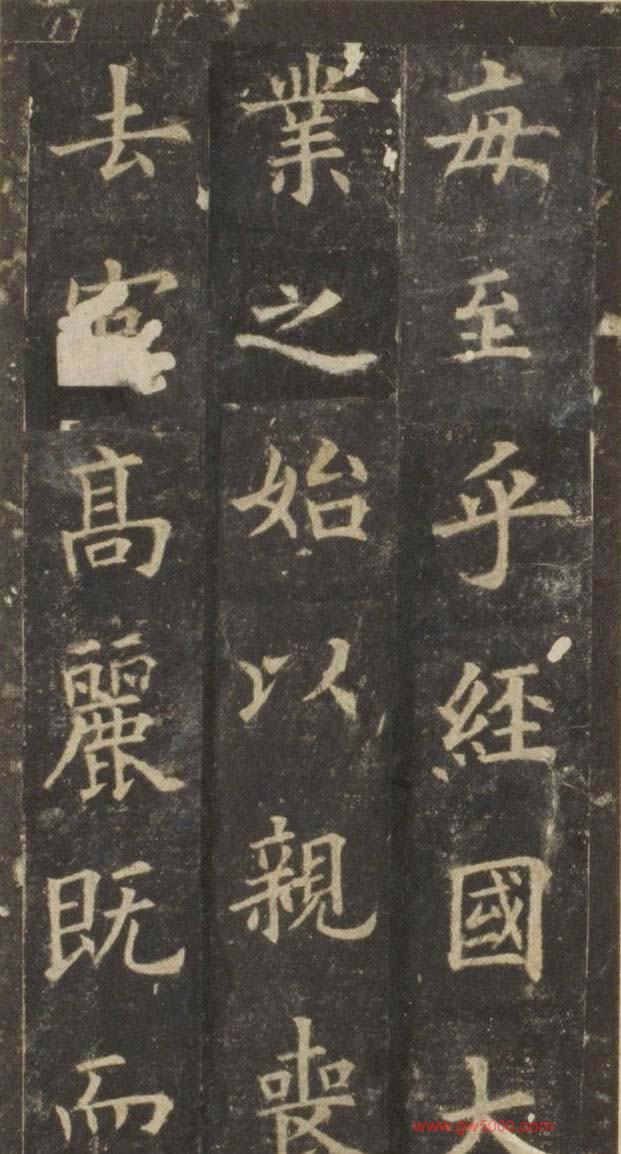 每至乎經國大
業之始以親喪
去高麗既而
www.gw5000.com